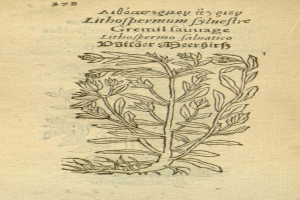 278
Λιθόσπερμον ἄγριον
Lithospermum syluestre
Gremil sauuage
Lithospermo saluatico
Wilder Meerhirß